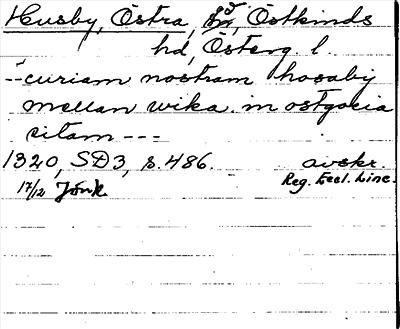 Husby, Östra, Östkinds
hd, Österg. l.
--curiam nostram hosaby
mellan wika in ostgocia
sitam ---
1320, SD3, s. 486. avskr.
17/12 Jönk. Reg. Eccl. Linc.